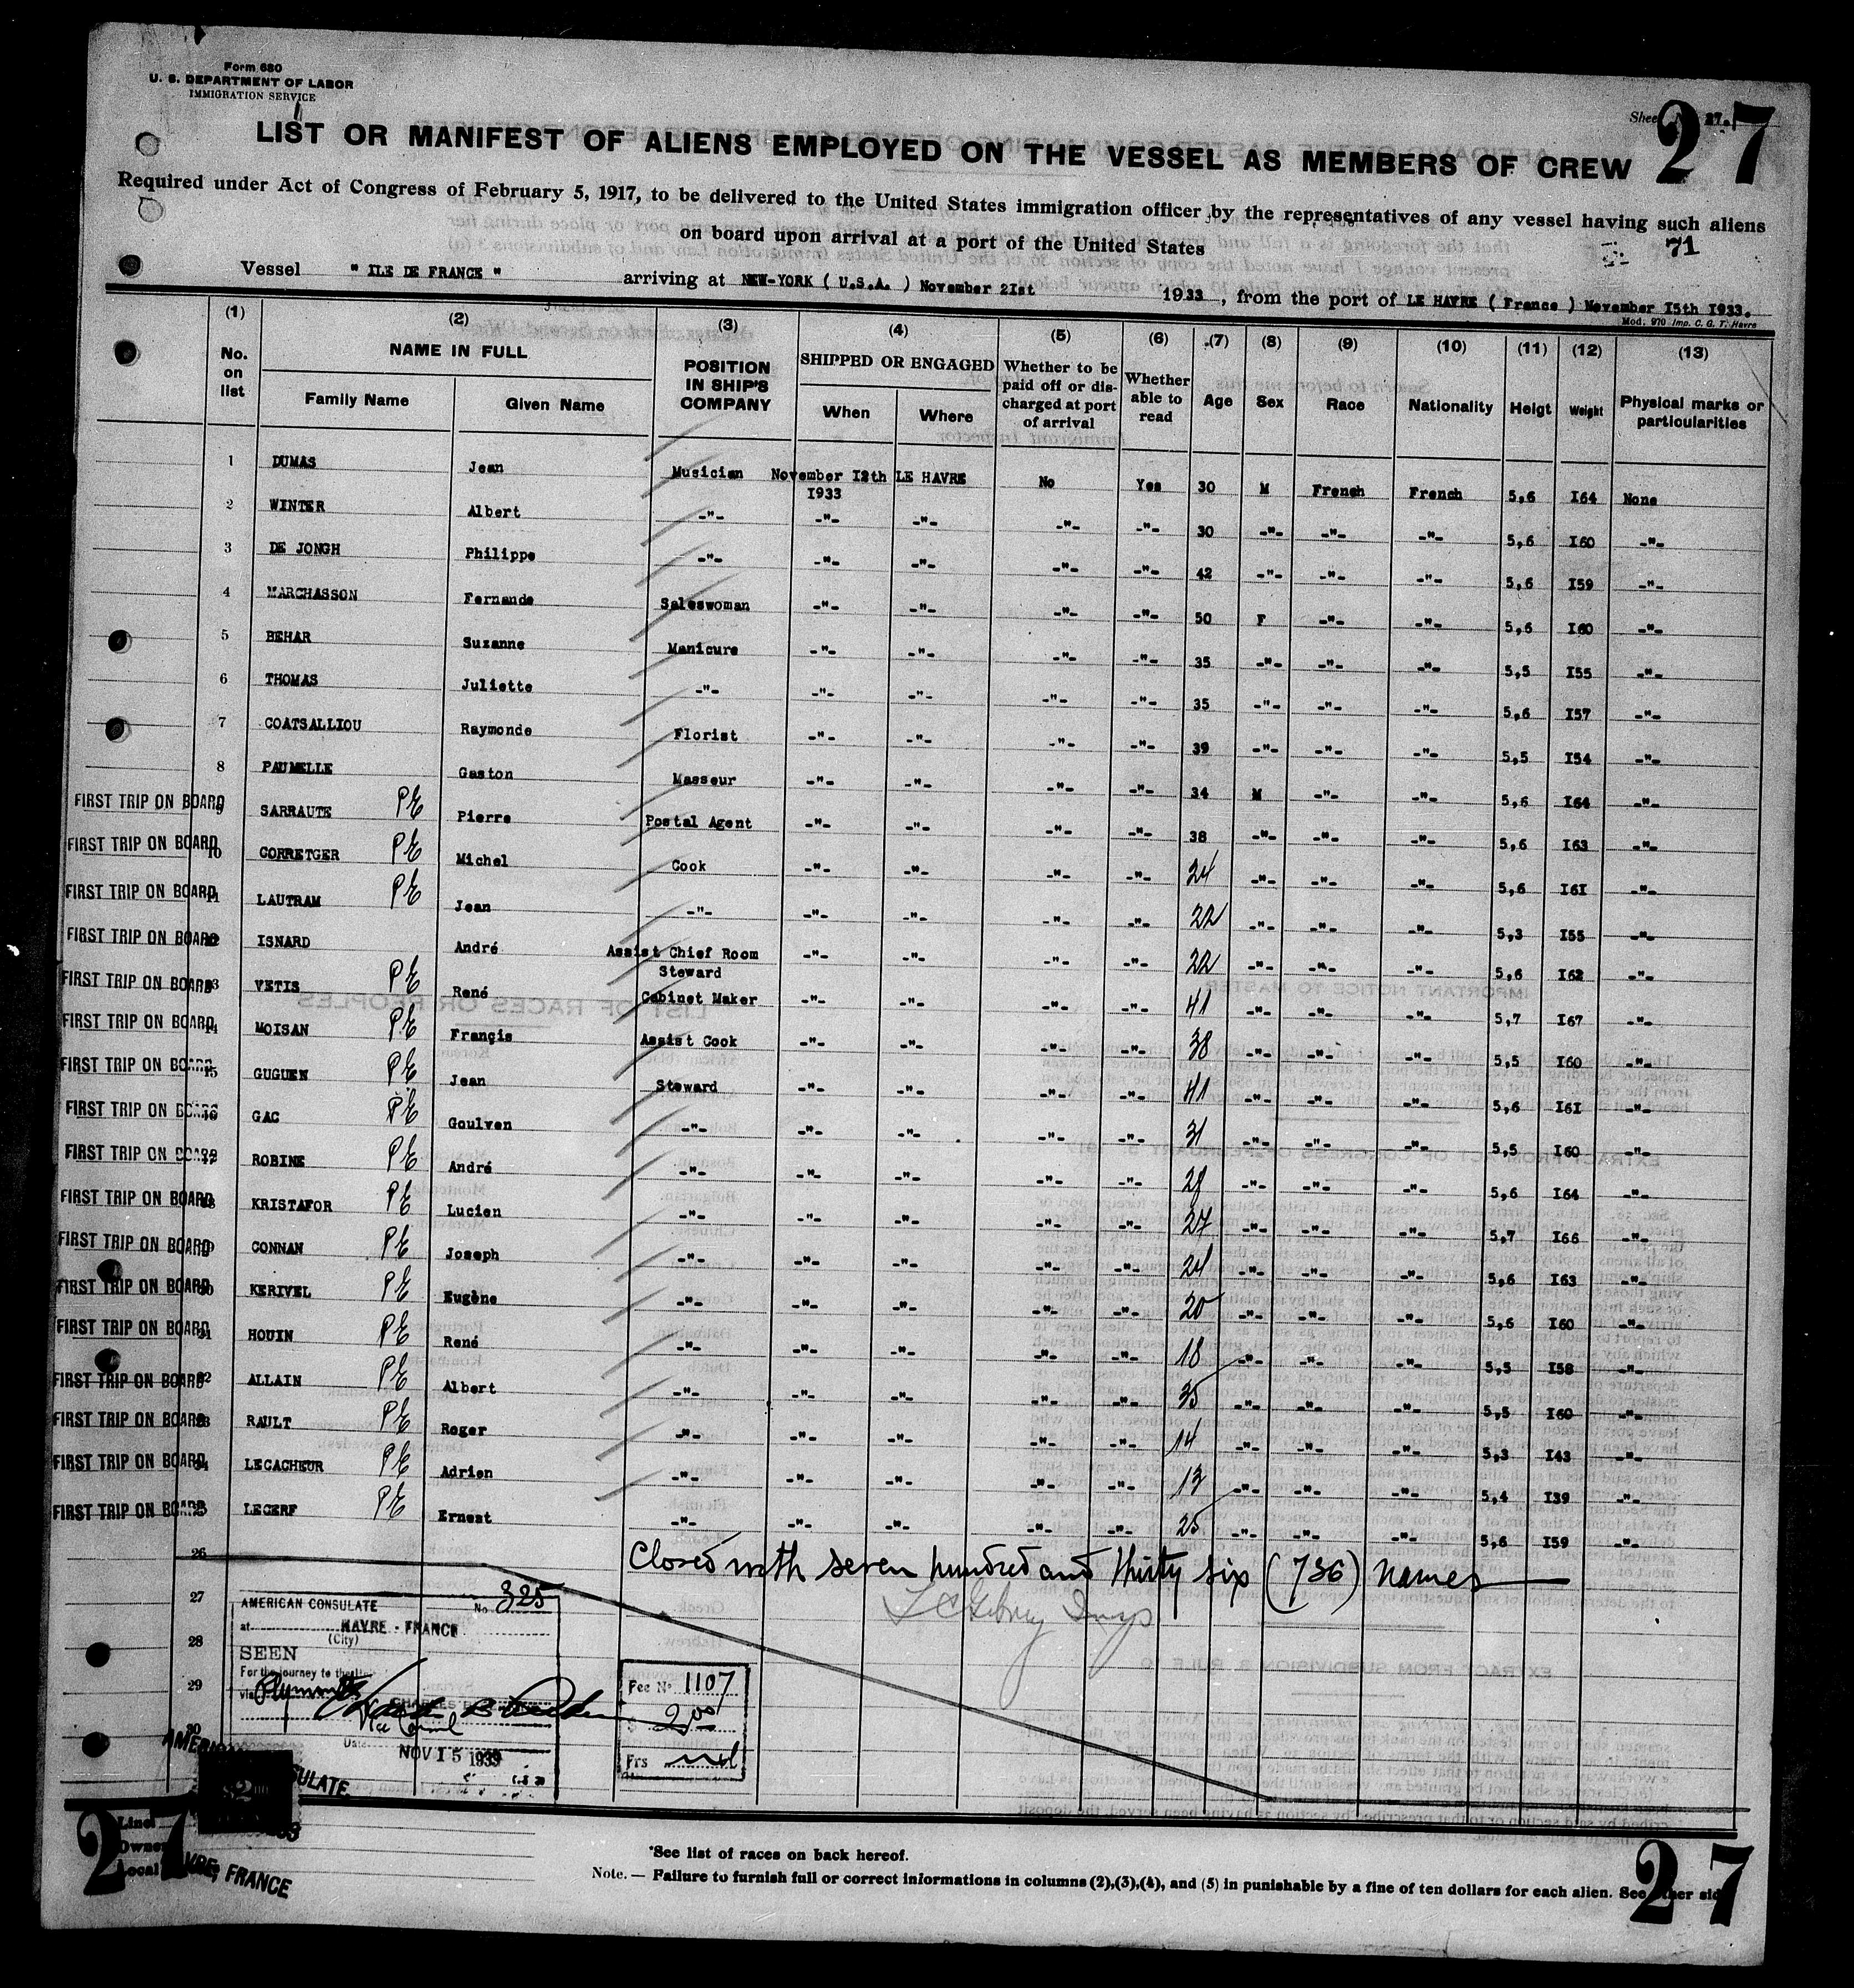 Form 680
U. S. DEPARTMENT OF LABOR
IMMIGRATION SERVICE
Sheet N 27.
27
LIST OR MANIFEST OF ALIENS EMPLOYED ON THE VESSEL AS MEMBERS OF CREW
Required under Act of Congress of February 5, 1917, to be delivered to the United States immigration officer by the representatives of any vessel having such aliens
on board upon arrival at a port of the United States
71
Vessel " ILE DE FRANCE " arriving at NEW-YORK ( U.S.A. ) November 21st 1933 , from the port of LE HAVRE ( France ) November I5th I933.
Mod. 970 Imp. C. G. T. Havre
(1) (2) (3) (4) (5) (6) (7) (8) (9) (10) (11) (12) (13)
No. on list NAME IN FULL Family Name Given Name POSITION IN SHIP'S COMPANY SHIPPED OR ENGAGED When Where Whether to be paid off or discharged at port of arrival Whether able to read Age Sex Race Nationality Heigt Weight Physical marks or particularities
1 DUMAS Jean Musician November I2th I933 LE HAVRE No Yes 30 M French French 5,6 I64 None
2 WINTER Albert -"- -"- -"- -"- -"- 30 -"- -"- -"- 5,6 I60 -"-
3 DE JONGH Philippe -"- -"- -"- -"- -"- 42 -"- -"- -"- 5,6 I59 -"-
4 MARCHASSON Fernande Saleswoman -"- -"- -"- -"- 50 F -"- -"- 5,6 I60 -"-
5 BEHAR Suzanne Manicure -"- -"- -"- -"- 35 -"- -"- -"- 5,5 I55 -"-
6 THOMAS Juliette -"- -"- -"- -"- -"- 35 -"- -"- -"- 5,6 I57 -"-
7 COATSALLIOU Raymonde Florist -"- -"- -"- -"- 39 -"- -"- -"- 5,5 I54 -"-
8 PAUMELLE Gaston Masseur -"- -"- -"- -"- 34 M -"- -"- 5,6 I64 -"-
FIRST TRIP ON BOARD 9 SARRAUTE PE Pierre Postal Agent -"- -"- -"- -"- 38 -"- -"- -"- 5,6 I63 -"-
FIRST TRIP ON BOARD 10 CORRETGER PE Michel Cook -"- -"- -"- -"- 24 -"- -"- -"- 5,6 I6I -"-
FIRST TRIP ON BOARD 11 LAUTRAM PE Jean -"- -"- -"- -"- -"- 22 -"- -"- -"- 5,3 I55 -"-
FIRST TRIP ON BOARD 12 ISNARD André Assist Chief Room Steward -"- -"- -"- -"- 22 -"- -"- -"- 5,6 I62 -"-
FIRST TRIP ON BOARD 13 VETIS PE René Cabinet Maker -"- -"- -"- -"- 41 -"- -"- -"- 5,7 I67 -"-
FIRST TRIP ON BOARD 14 MOISAN PE Françis Assist Cook -"- -"- -"- -"- 38 -"- -"- -"- 5,5 I60 -"-
FIRST TRIP ON BOARD 15 GUGUEN PE Jean Steward -"- -"- -"- -"- 41 -"- -"- -"- 5,6 I6I -"-
FIRST TRIP ON BOARD 16 GAC PE Goulven -"- -"- -"- -"- -"- 31 -"- -"- -"- 5,5 I60 -"-
FIRST TRIP ON BOARD 17 ROBINE PE André -"- -"- -"- -"- -"- 28 -"- -"- -"- 5,6 I64 -"-
FIRST TRIP ON BOARD 18 KRISTAFOR PE Lucien -"- -"- -"- -"- -"- 27 -"- -"- -"- 5,7 I66 -"-
FIRST TRIP ON BOARD 19 CONNAN PE Joseph -"- -"- -"- -"- -"- 24 -"- -"- -"- 5,6 I63 -"-
FIRST TRIP ON BOARD 20 KERIVEL PE Eugène -"- -"- -"- -"- -"- 20 -"- -"- -"- 5,6 I60 -"-
FIRST TRIP ON BOARD 21 HOUIN PE René -"- -"- -"- -"- -"- 18 -"- -"- -"- 5,5 I58 -"-
FIRST TRIP ON BOARD 22 ALLAIN PE Albert -"- -"- -"- -"- -"- 35 -"- -"- -"- 5,5 I60 -"-
FIRST TRIP ON BOARD 23 RAULT PE Roger -"- -"- -"- -"- -"- 14 -"- -"- -"- 5,3 I43 -"-
FIRST TRIP ON BOARD 24 LECACHEUR PE Adrien -"- -"- -"- -"- -"- 13 -"- -"- -"- 5,4 I39 -"-
FIRST TRIP ON BOARD 25 LECERF PE Ernest -"- -"- -"- -"- -"- 25 -"- -"- -"- 5,6 I59 -"-
26 Closed with seven hundred and thirty six (736) names
27
28
29
30
AMERICAN CONSULATE No 325
at HAVRE - FRANCE
(City)
SEEN
For the journey to the
via Plymouth
Vice Consul
Date NOV 15 1933
Fee No 1107
$ 2.00
Frs nil
AMERICAN CONSULATE
HAVRE, FRANCE
Line
Owner
Local
27
*See list of races on back hereof.
Note. — Failure to furnish full or correct informations in columns (2),(3),(4), and (5) in punishable by a fine of ten dollars for each alien. See other side
27